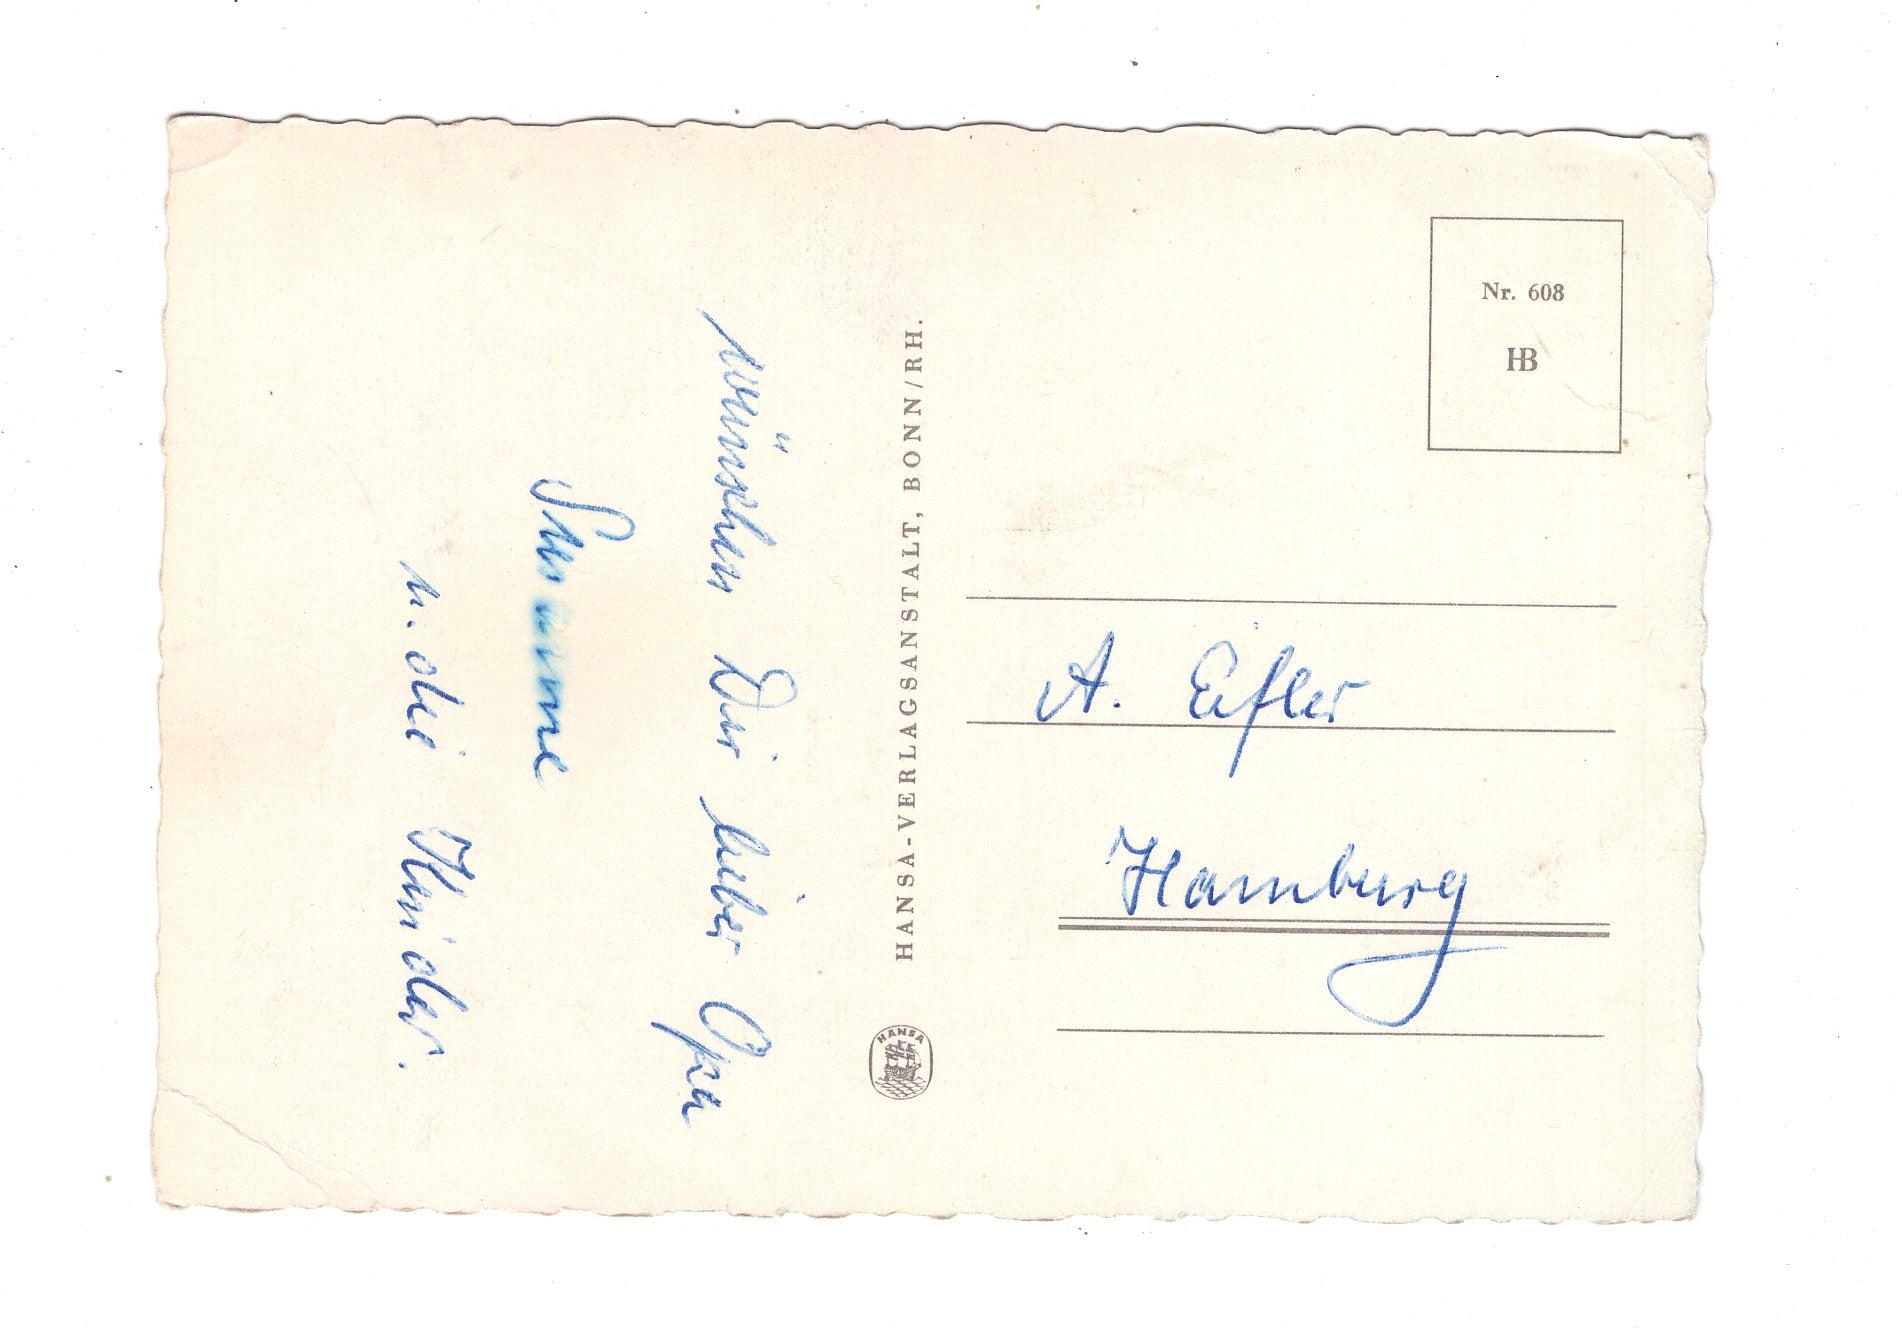 wünschen Dir lieber Opa
Susanne
u. die Kinder.
HANSA-VERLAGSANSTALT, BONN/RH.
HANSA
Nr. 608
HB
A. Eifler
Hamburg